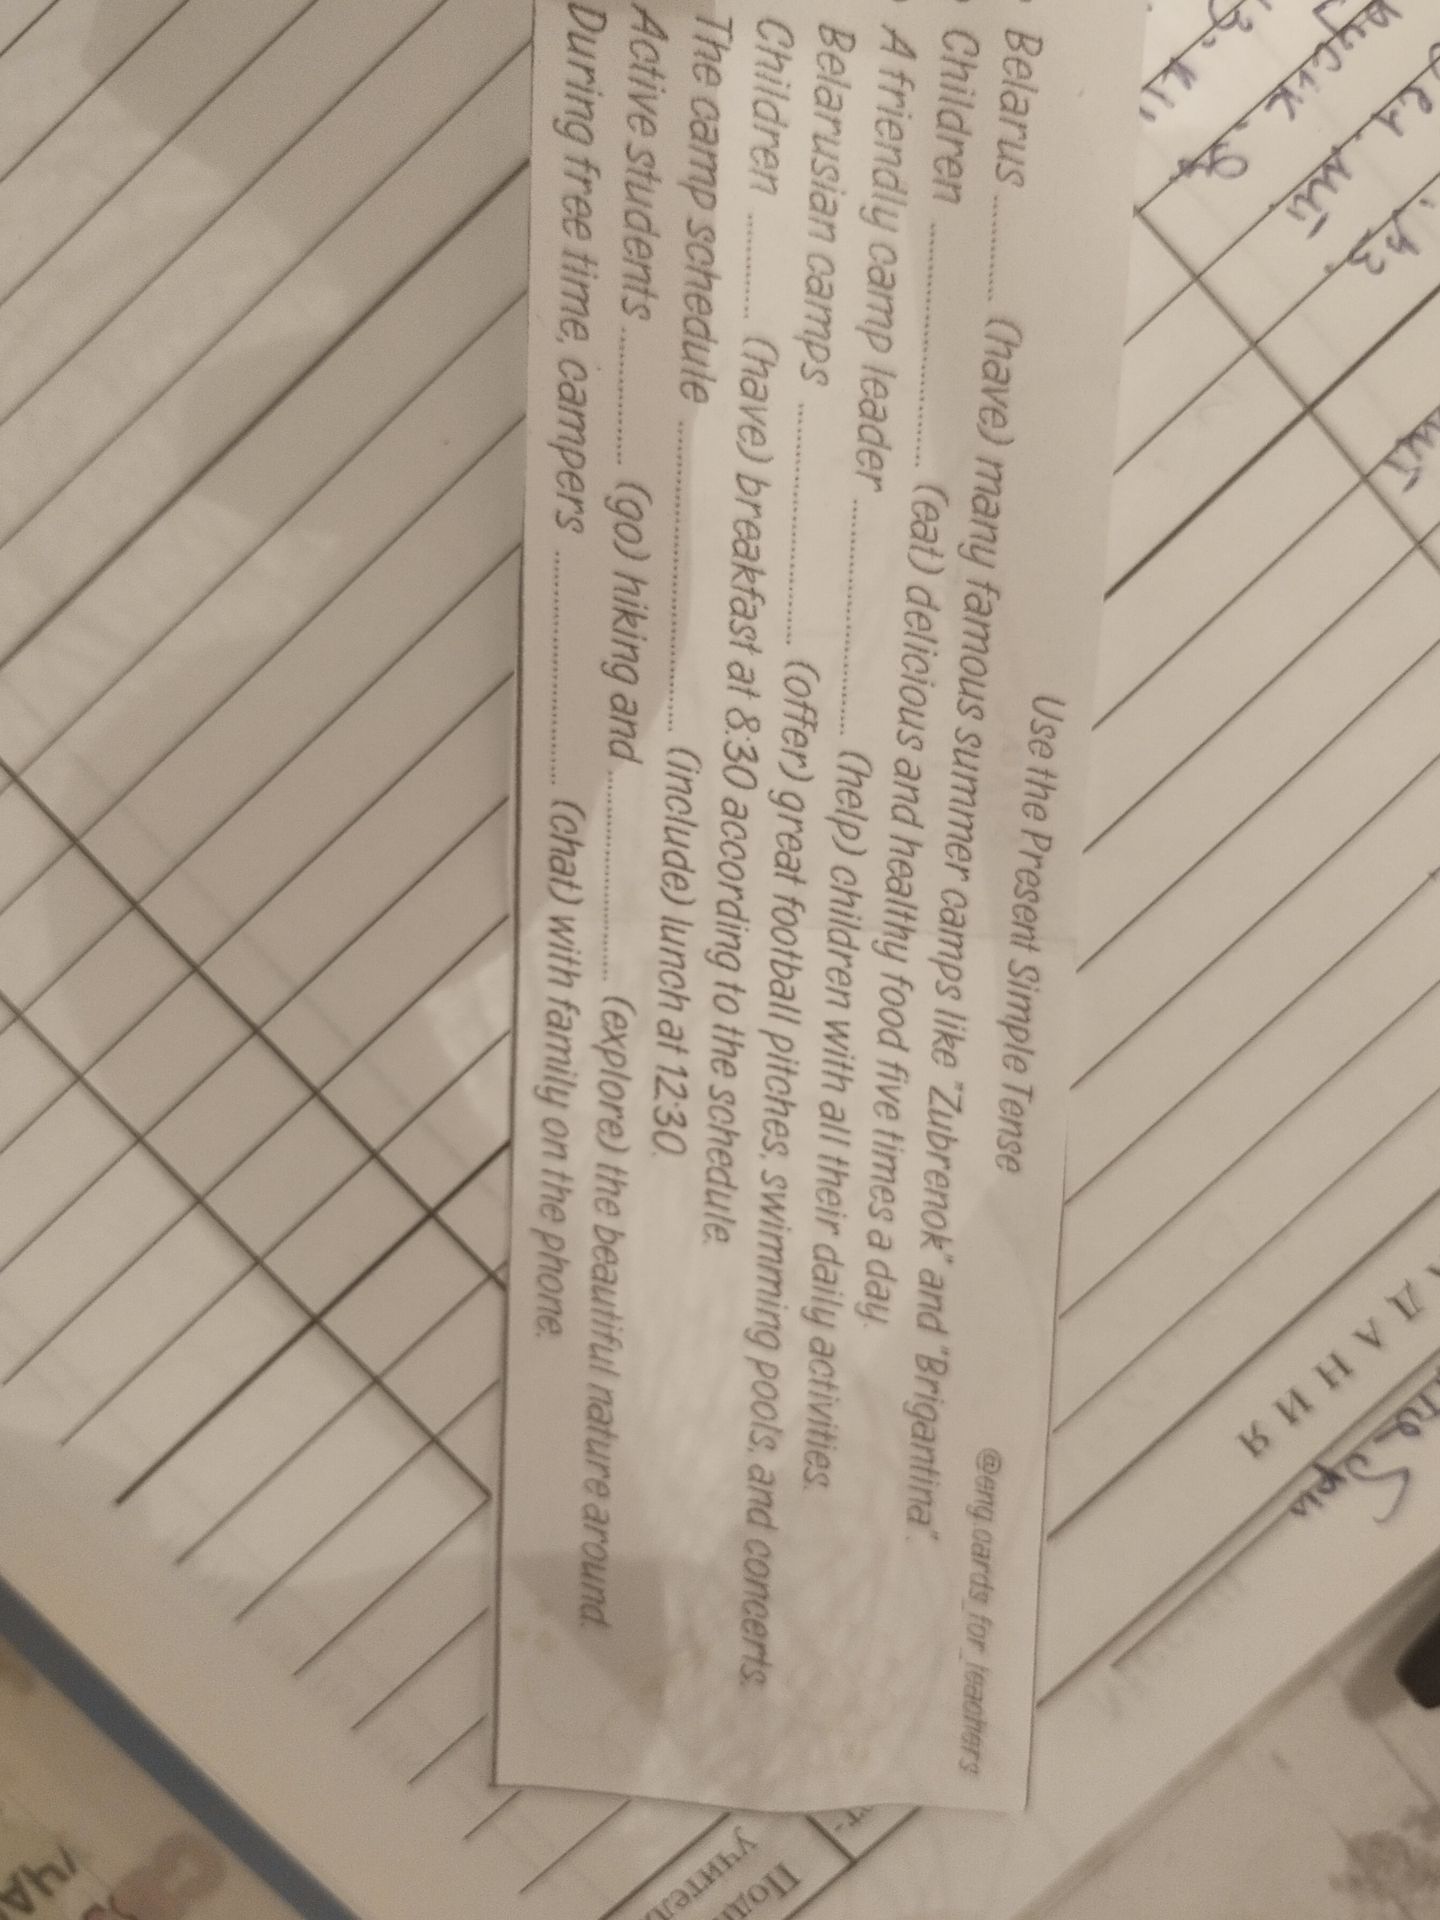 Use the Present Simple Tense
@eng.cards_for_teachers
Belarus .......... (have) many famous summer camps like "Zubrenok" and "Brigantina".
Children .......... (eat) delicious and healthy food five times a day.
A friendly camp leader .......... (help) children with all their daily activities.
Belarusian camps .......... (offer) great football pitches, swimming pools, and concerts.
Children .......... (have) breakfast at 8:30 according to the schedule.
The camp schedule .......... (include) lunch at 12:30.
Active students .......... (go) hiking and .......... (explore) the beautiful nature around.
During free time, campers .......... (chat) with family on the phone.